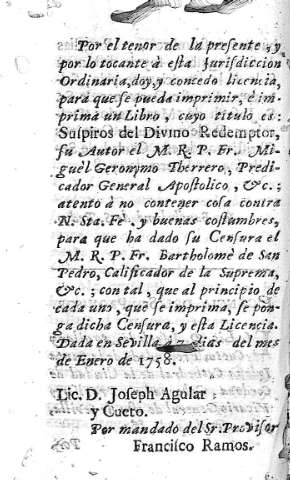 Por el tenor de la presente, y
por lo tocante à esta Jurisdiccion
Ordinaria, doy, y concedo licencia,
para que se pueda imprimir, è im-
prima un Libro, cuyo titulo es:
Suspiros del Divino Redemptor,
su Autor el M. R. P. Fr. Mi-
guèl Geronymo Therrero, Predi-
cador General Apostolico, &c.;
atento à no contener cosa contra
N. Sta. Fè, y buenas costumbres,
para que ha dado su Censura el
M. R. P. Fr. Bartholomè de San
Pedro, Calificador de la Suprema,
&c.; con tal, que al principio de
cada uno, que se imprima, se pon-
ga dicha Censura, y esta Licencia.
Dada en Sevilla à 7 dias del mes
de Enero de 1758.
Lic. D. Joseph Agular
y Cueto.
Por mandado del Sr. Provisor
Francisco Ramos.